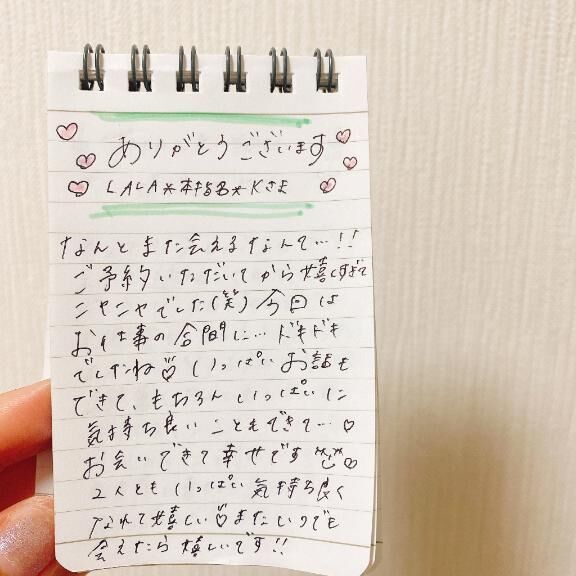 ありがとうございます
LALA*本指名*Kさま
なんとまた会えるなんて…!!
ご予約いただいてから嬉しすぎて
ニヤニヤでした(笑)今日は
お仕事の合間に…ドキドキ
でしたね♡いっぱいお話も
できて、もちろんいっぱいに
気持ち良いこともできて…♡
お会いできて幸せです♡
2人ともいっぱい気持ち良く
なれて嬉しい♡またいつでも
会えたら嬉しいです!!